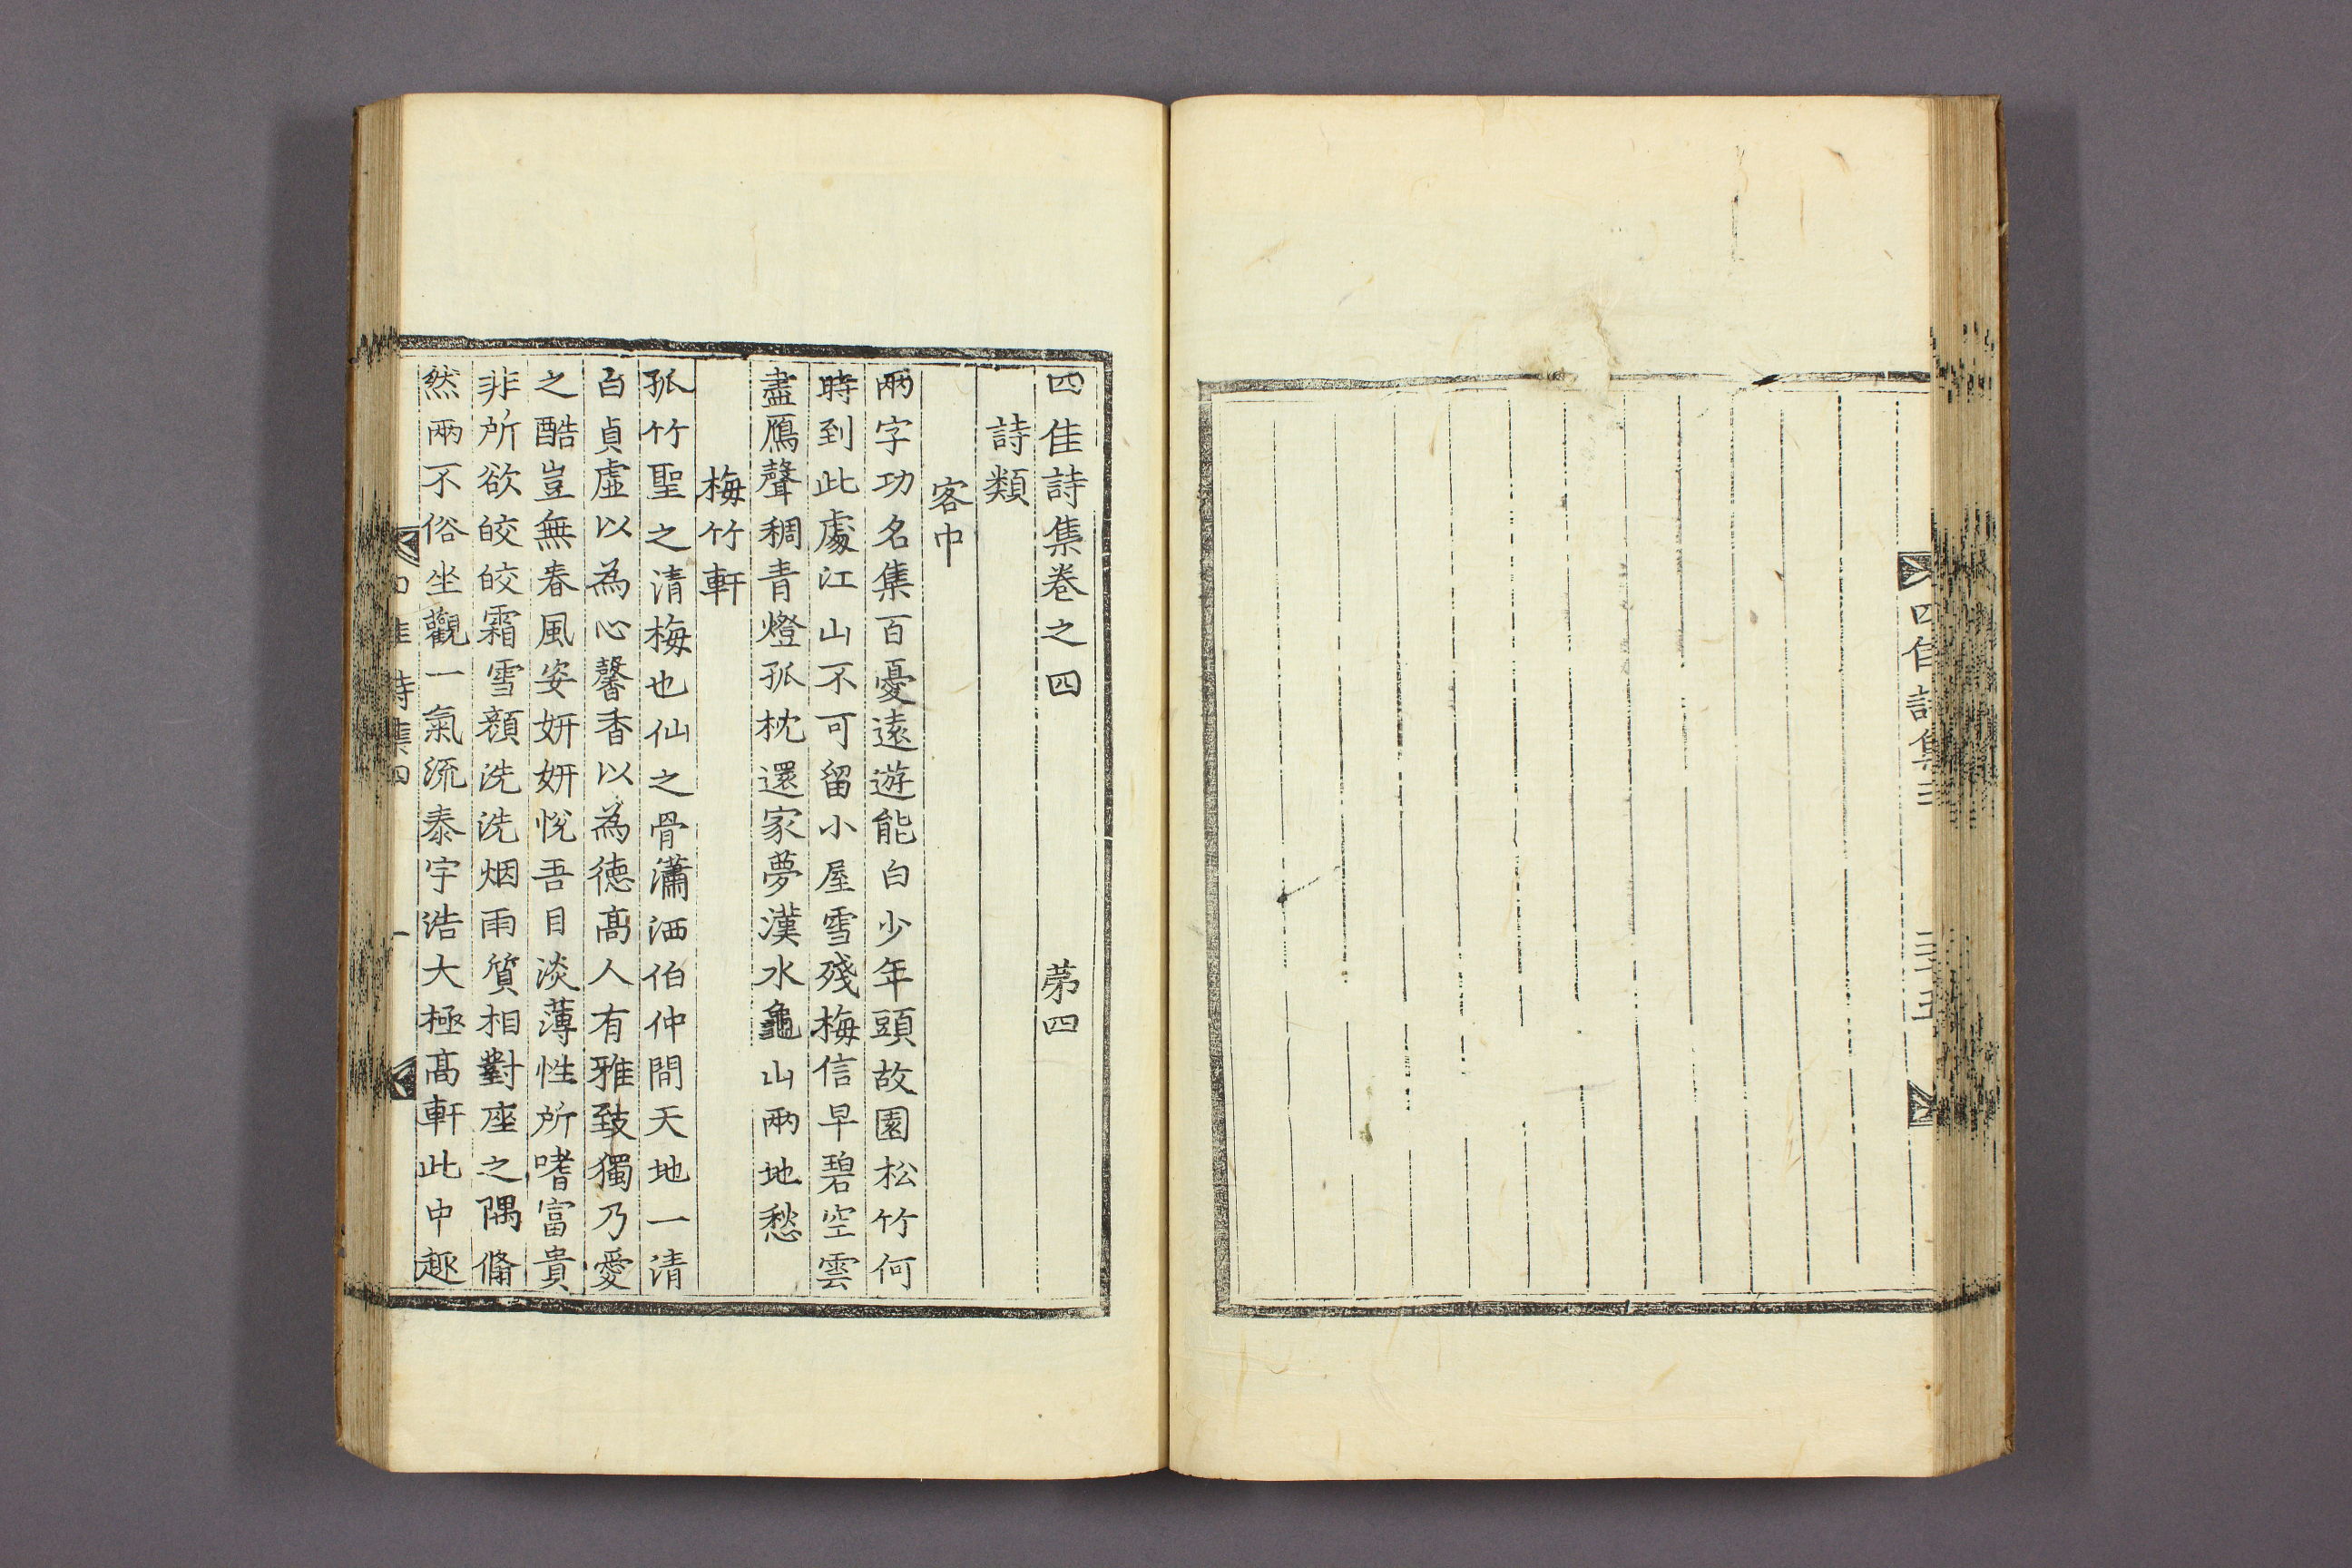 四佳詩集三
三十五
四佳詩集卷之四 苐四
詩類
客中
兩字功名集百憂遠遊能白少年頭故園松竹何
時到此處江山不可留小屋雪殘梅信早碧空雲
盡鴈聲稠青燈孤枕還家夢漢水龜山兩地愁
梅竹軒
孤竹聖之清梅也仙之骨瀟洒伯仲間天地一清
白貞虛以為心馨香以為德高人有雅致獨乃愛
之酷豈無春風姿妍妍悅吾目淡薄性所嗜富貴
非所欲皎皎霜雪顔洗洗烟雨質相對座之隅脩
然兩不俗坐觀一氣流泰宇浩大極高軒此中趣
四佳詩集四
一